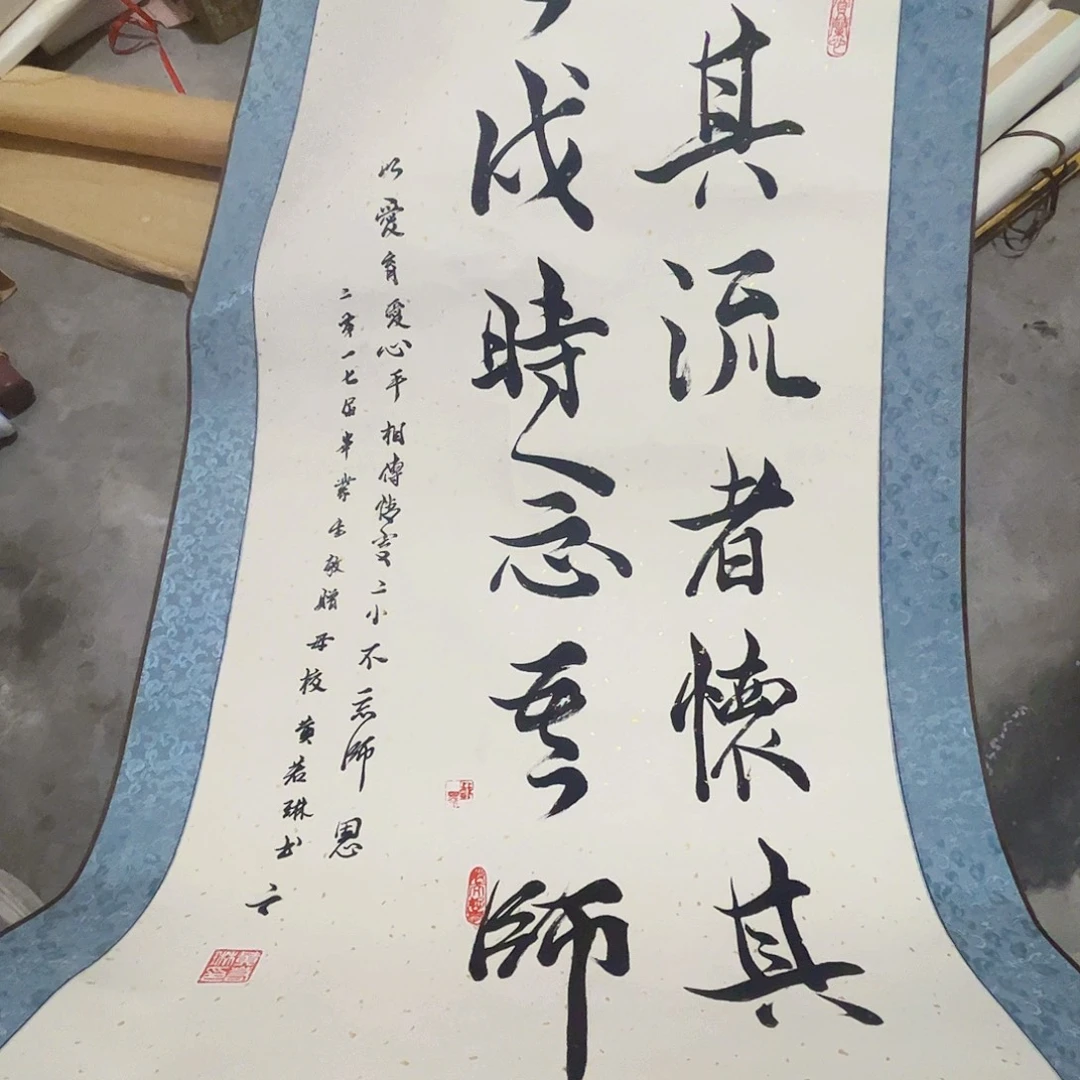 其流者懷其
成時念吾師
以愛育愛心手相傳情二小不忘師恩
二零一七届畢業生敬贈母校黄若琳书